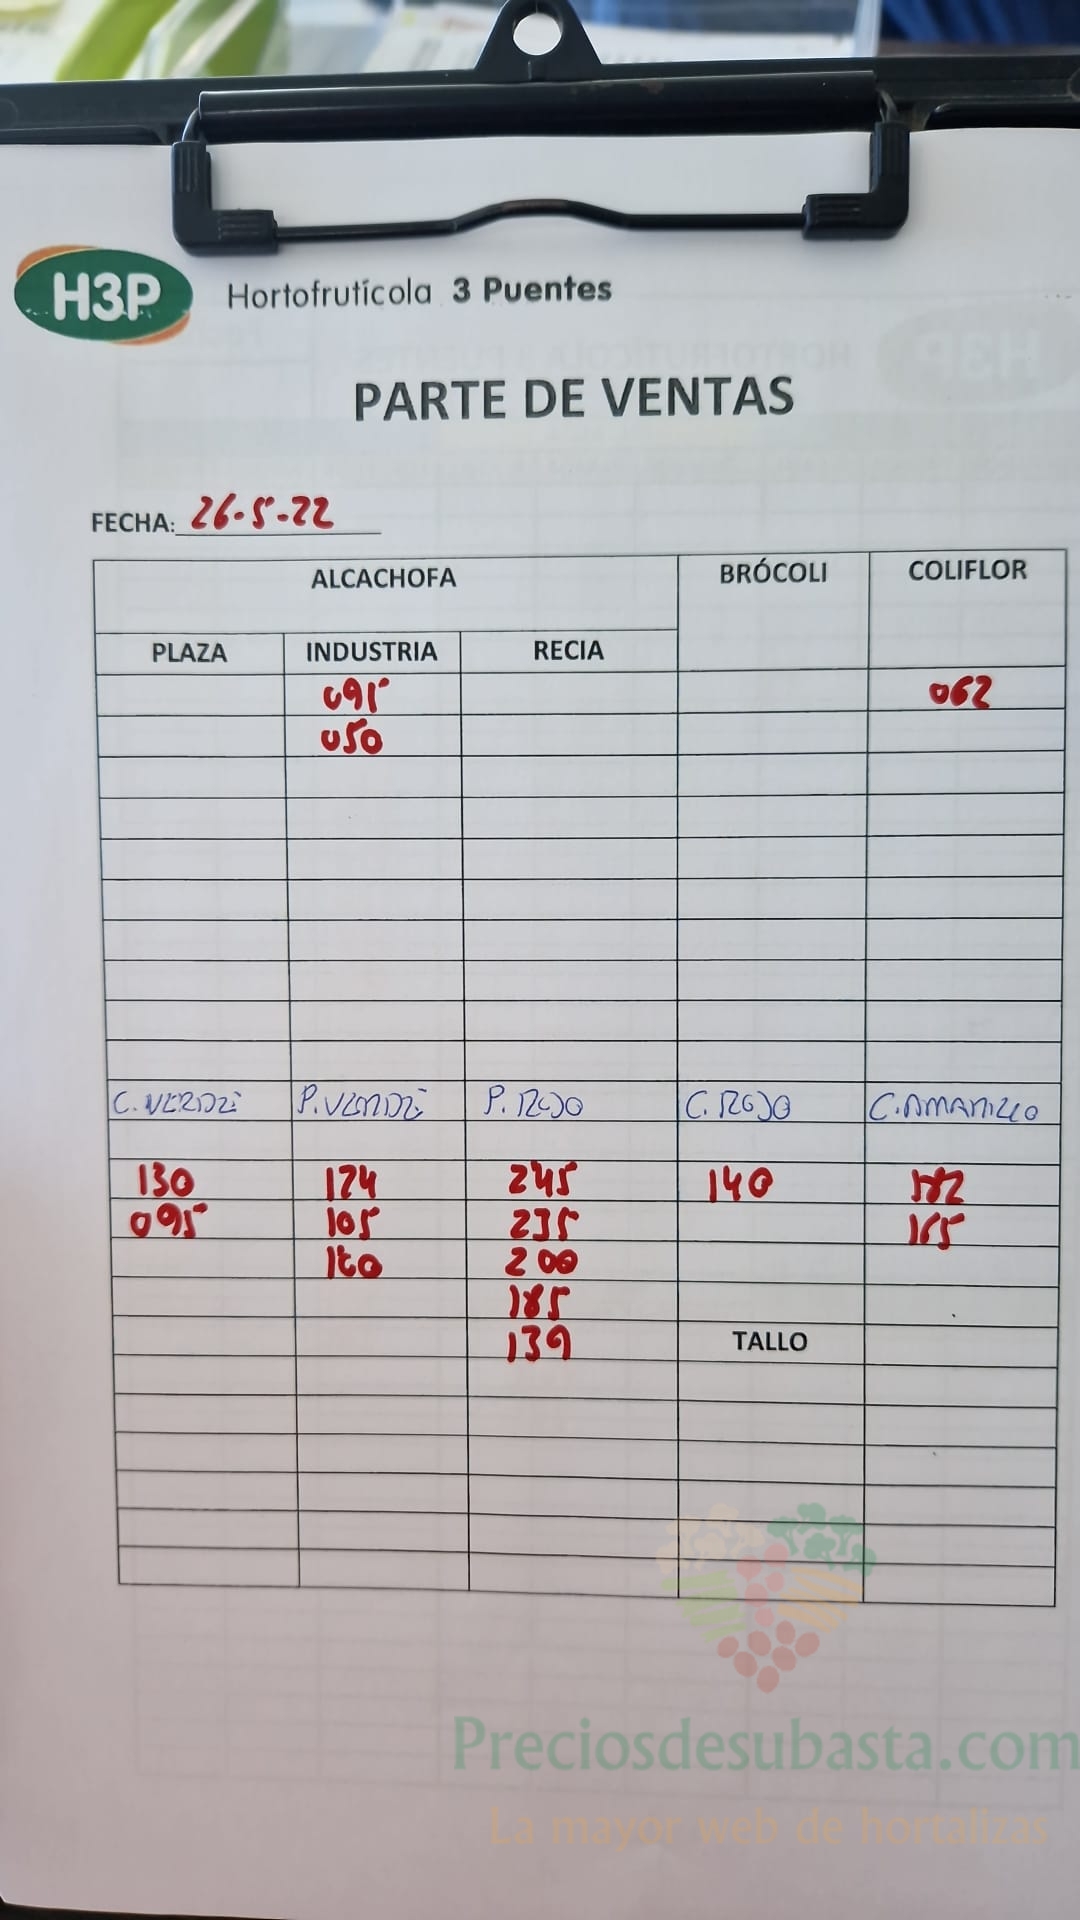 H3P Hortofrutícola 3 Puentes
PARTE DE VENTAS
FECHA: 26-5-22
ALCACHOFA BRÓCOLI COLIFLOR
PLAZA INDUSTRIA RECIA
095 062
050
C.VERDE P.VERDE P.ROJO C.ROJO C.AMARILLO
130 124 245 140
095 105 235 165
200
185
139 TALLO
Preciosdesubasta.com
La mayor web de hortalizas